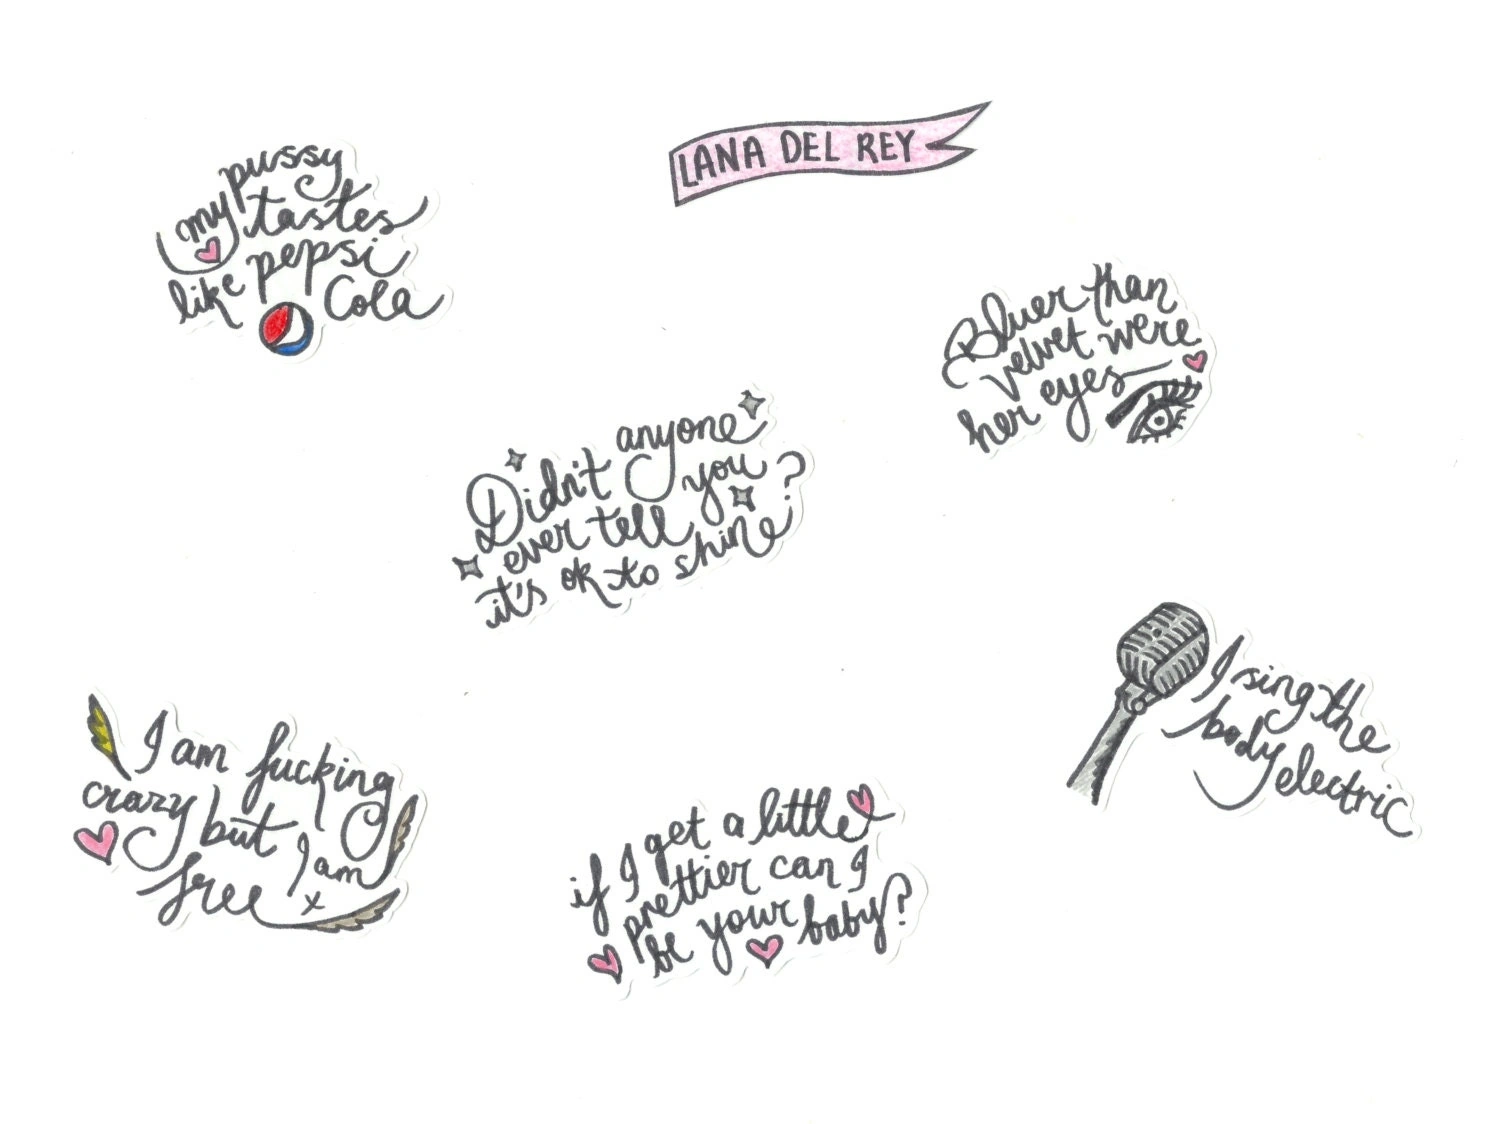 LANA DEL REY
my pussy
tastes
like pepsi
Cola
Bluer than
velvet were
her eyes
Didn't anyone
ever tell you
it's ok to shine?
I sing the
body electric
I am fucking
crazy but I am
free x
if I get a little
prettier can I
be your baby?